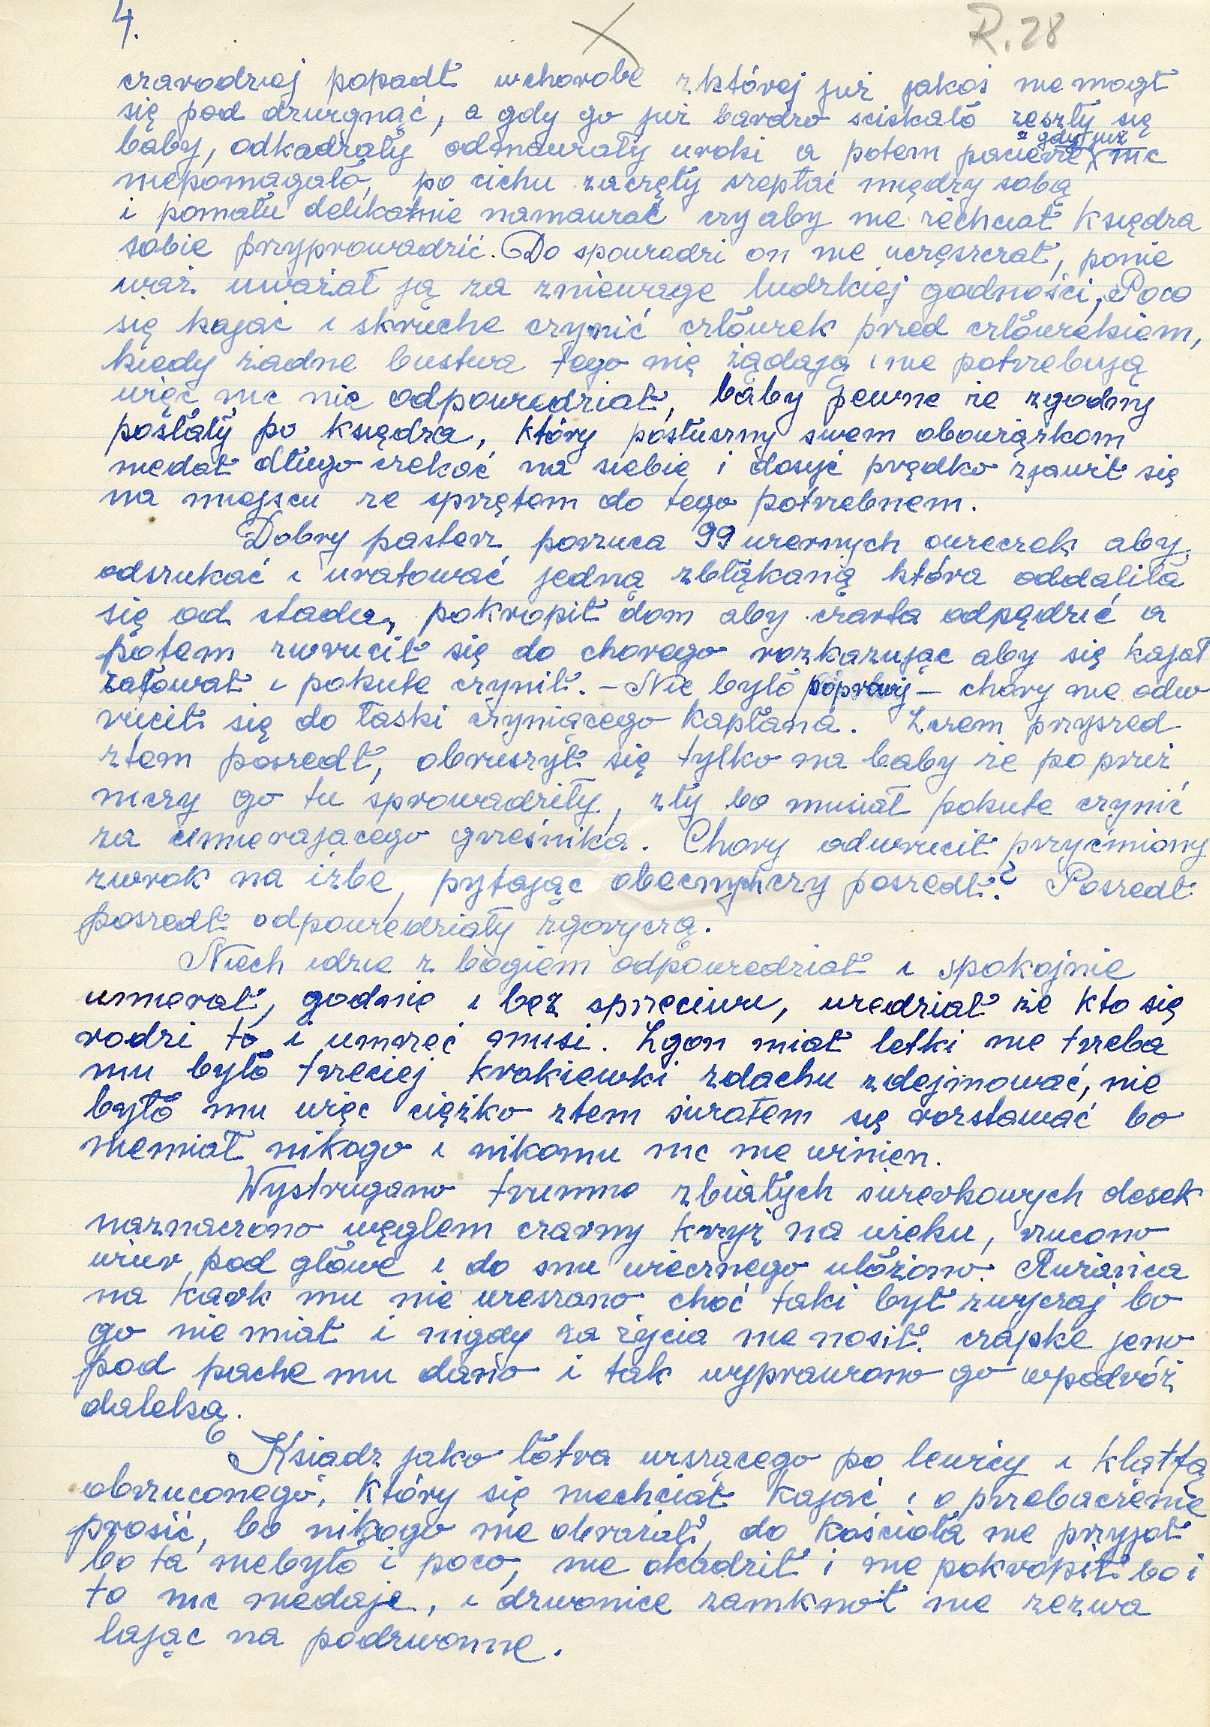 4.
R.28
czarodziej popadł wchorobe zktórej już jakoś nie mogł
się pod dzwignąć, a gdy go już bardzo sciskało zeszły się
baby, odkadzały odmawiały uroki a potem pacierze
a gdy już
nic
niepomagało, po cichu zaczęły szeptać między sobą
i pomału delikatnie namawiać czy aby nie zechciał Księdza
sobie przyprowadzić. Do spowiadzi on nie uczęszczał, ponie
waż uważał ją za zniewage ludzkiej godności, Poco
się kajać i skruche czynić człowiek przed człowiekiem,
kiedy żadne bustwa tego nię żądają i nie potrzebują
więc nic nie odpowiedział, baby pewne że zgodny
posłały po księdza, który posłuszny swem obowiązkom
niedał długo czekać na siebie i dosyć prędko zjawił się
na miejscu ze sprzętem do tego potrzebnem.
Dobry pasterz porzuca 99 wiernych owieczek aby
odszukać i uratować jedną zbłąkaną która oddaliła
się od stada, pokropił dom aby czarta odpędzić a
potem zwrucił się do chorego rozkazując aby się kajał
załował i pokute czynił. – Nie było poprawy – chory nie odw
rucił się do łaski czyniącego kapłana. Zczem przyszed
ztem poszedł, obruszył się tylko na baby że po pruż
niczy go tu sprowadziły, zły bo musiał pokute czynić
za umierajacego grześnika. Chory odwrucił przyćmiony
zwrok na izbe, pytając obecnych czy poszedł? Poszedł
poszedł odpowiedziały zgoryczą.
Niech idzie z bogiem odpowiedział i spokojnie
umierał, godnie i bez sprzeciwu, wiedział że kto się
rodzi to i umrzeć musi. Zgon miał letki nie trzeba
mu było trzeciej krokiewki zdachu zdejmować, nie
było mu więc ciężko ztem światem się rozstawać bo
niemiał nikogo i nikomu nic nie winien.
Wystrugano trumne zbiałych świerkowych desek
naznaczono węglem czarny krzyż na wieku, rzucono
wiur pod głowe i do snu wiecznego ułóżono. Rużańca
na kark mu nie wieszano choć taki był zwyczaj bo
go nie miał i nigdy za życia nie nosił. czapke jeno
pod pache mu dano i tak wyprawiono go wpodróż
daleką.
Ksiądz jako łotra wiszącego po lewicy i klątfą
obrzuconego, który się niechciał kajać i o przebaczenie
prosić, bo nikogo nie obraził, do kościoła nie przyjoł
bo ta niebyło i poco, nie okadził i nie pokropił bo i
to nic niedaje, i dzwonice zamknoł nie zezwa
lając na podzwonne.